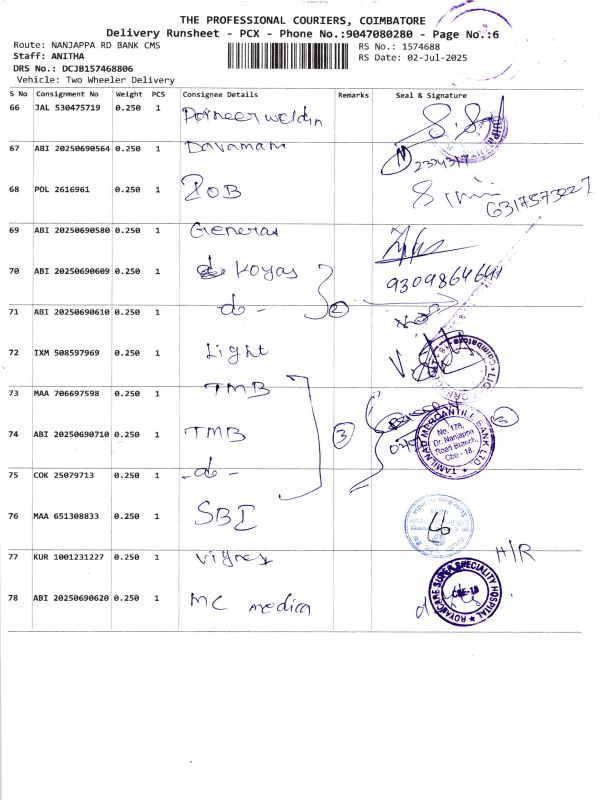 THE PROFESSIONAL COURIERS, COIMBATORE
Delivery Runsheet - PCX - Phone No.:9047080280 - Page No.:6
Route: NANJAPPA RD BANK CMS
RS No.: 1574688
Staff: ANITHA
RS Date: 02-Jul-2025
DRS No.: DCJB157468806
Vehicle: Two Wheeler Delivery
S No Consignment No Weight PCS Consignee Details Remarks Seal & Signature
66 JAL 530475719 0.250 1
67 ABI 20250690564 0.250 1
68 POL 2616961 0.250 1
6317573227
69 ABI 20250690580 0.250 1 General
70 ABI 20250690609 0.250 1 Koyas
71 ABI 20250690610 0.250 1 -do- 2
72 IXM 508597969 0.250 1 Light
73 MAA 706697598 0.250 1 TMB
74 ABI 20250690710 0.250 1 TMB 3
TAMILNAD MERCANTILE BANK LTD.
No. 178,
Dr. Nanjappa
Road Branch,
Cbe - 18.
75 COK 25079713 0.250 1 -do-
76 MAA 651308833 0.250 1 SBI
77 KUR 1001231227 0.250 1
H/R
78 ABI 20250690620 0.250 1 MC medica
ROYALCARE SUPER SPECIALITY HOSPITAL
CBE-18